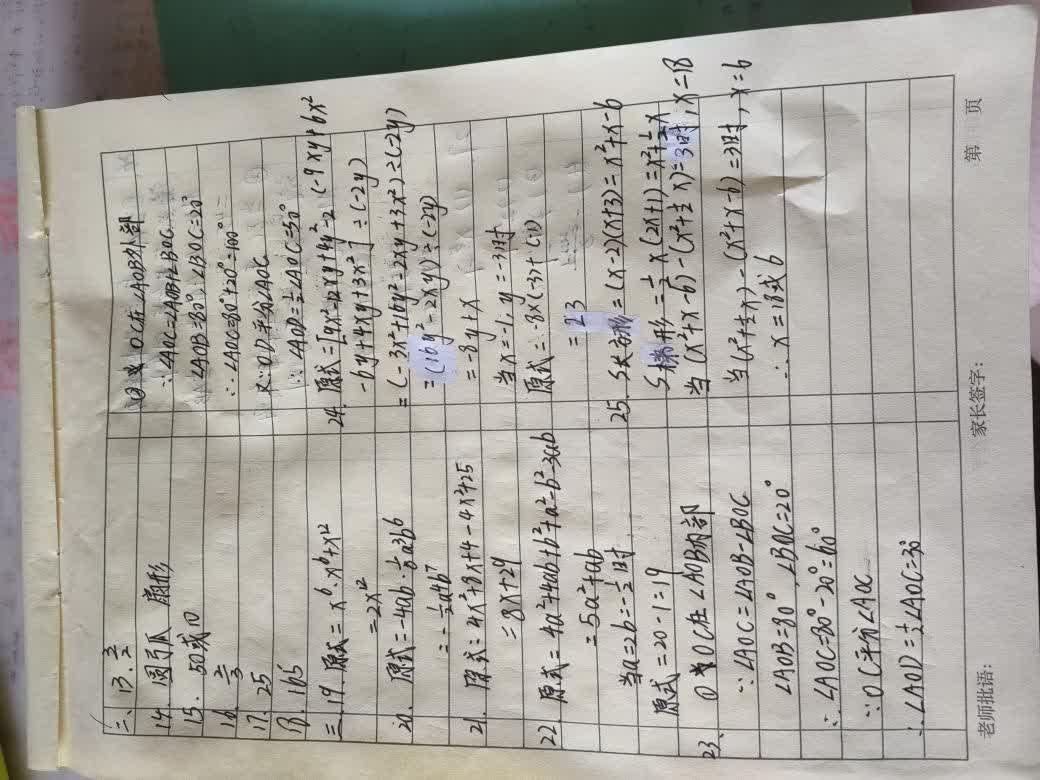 二、13. 3/2
14. 圆弧 扇形
15. 50或10
16. 2/3
17. 25
18. 165
三、19. 原式=x⁶·x⁶+x¹²
=2x¹²
20. 原式=-4ab·1/8a³b⁶
=-1/2a⁴b⁷
21. 原式=4x²+8x+4-4x²+25
=8x+29
22. 原式=4a²+4ab+b²+a²-b²-3ab
=5a²+ab
当a=2b=-1/2时
原式=20-1=19
23. ① OC在∠AOB内部
∵∠AOC=∠AOB-∠BOC
∠AOB=80°,∠BOC=20°
∴∠AOC=80°-20°=60°
∵OC平分∠AOC
∴∠AOD=1/2∠AOC=30°
② OC在∠AOB外部
∵∠AOC=∠AOB+∠BOC
∠AOB=80°,∠BOC=20°
∴∠AOC=80°+20°=100°
又∵OD平分∠AOC
∴∠AOD=1/2∠AOC=50°
24. 原式=[9x²-12xy+4y²-2(-9xy+6x²
-6y+4xy+3x²]÷(-2y)
=(-3x²+16y²-2xy+3x²)÷(-2y)
=(16y²-2xy)÷(-2y)
=-8y+x
当x=-1,y=-3时
原式=-8×(-3)+(-1)
=23
25. S长方形=(x-2)(x+3)=x²+x-6
S梯形=1/2x(2x+1)=x²+1/2x
当(x²+x-6)-(x²+1/2x)=3时,x=18
当(x²+1/2x)-(x²+x-6)=3时,x=6
∴x=18或6
老师批语:
家长签字:
第 页